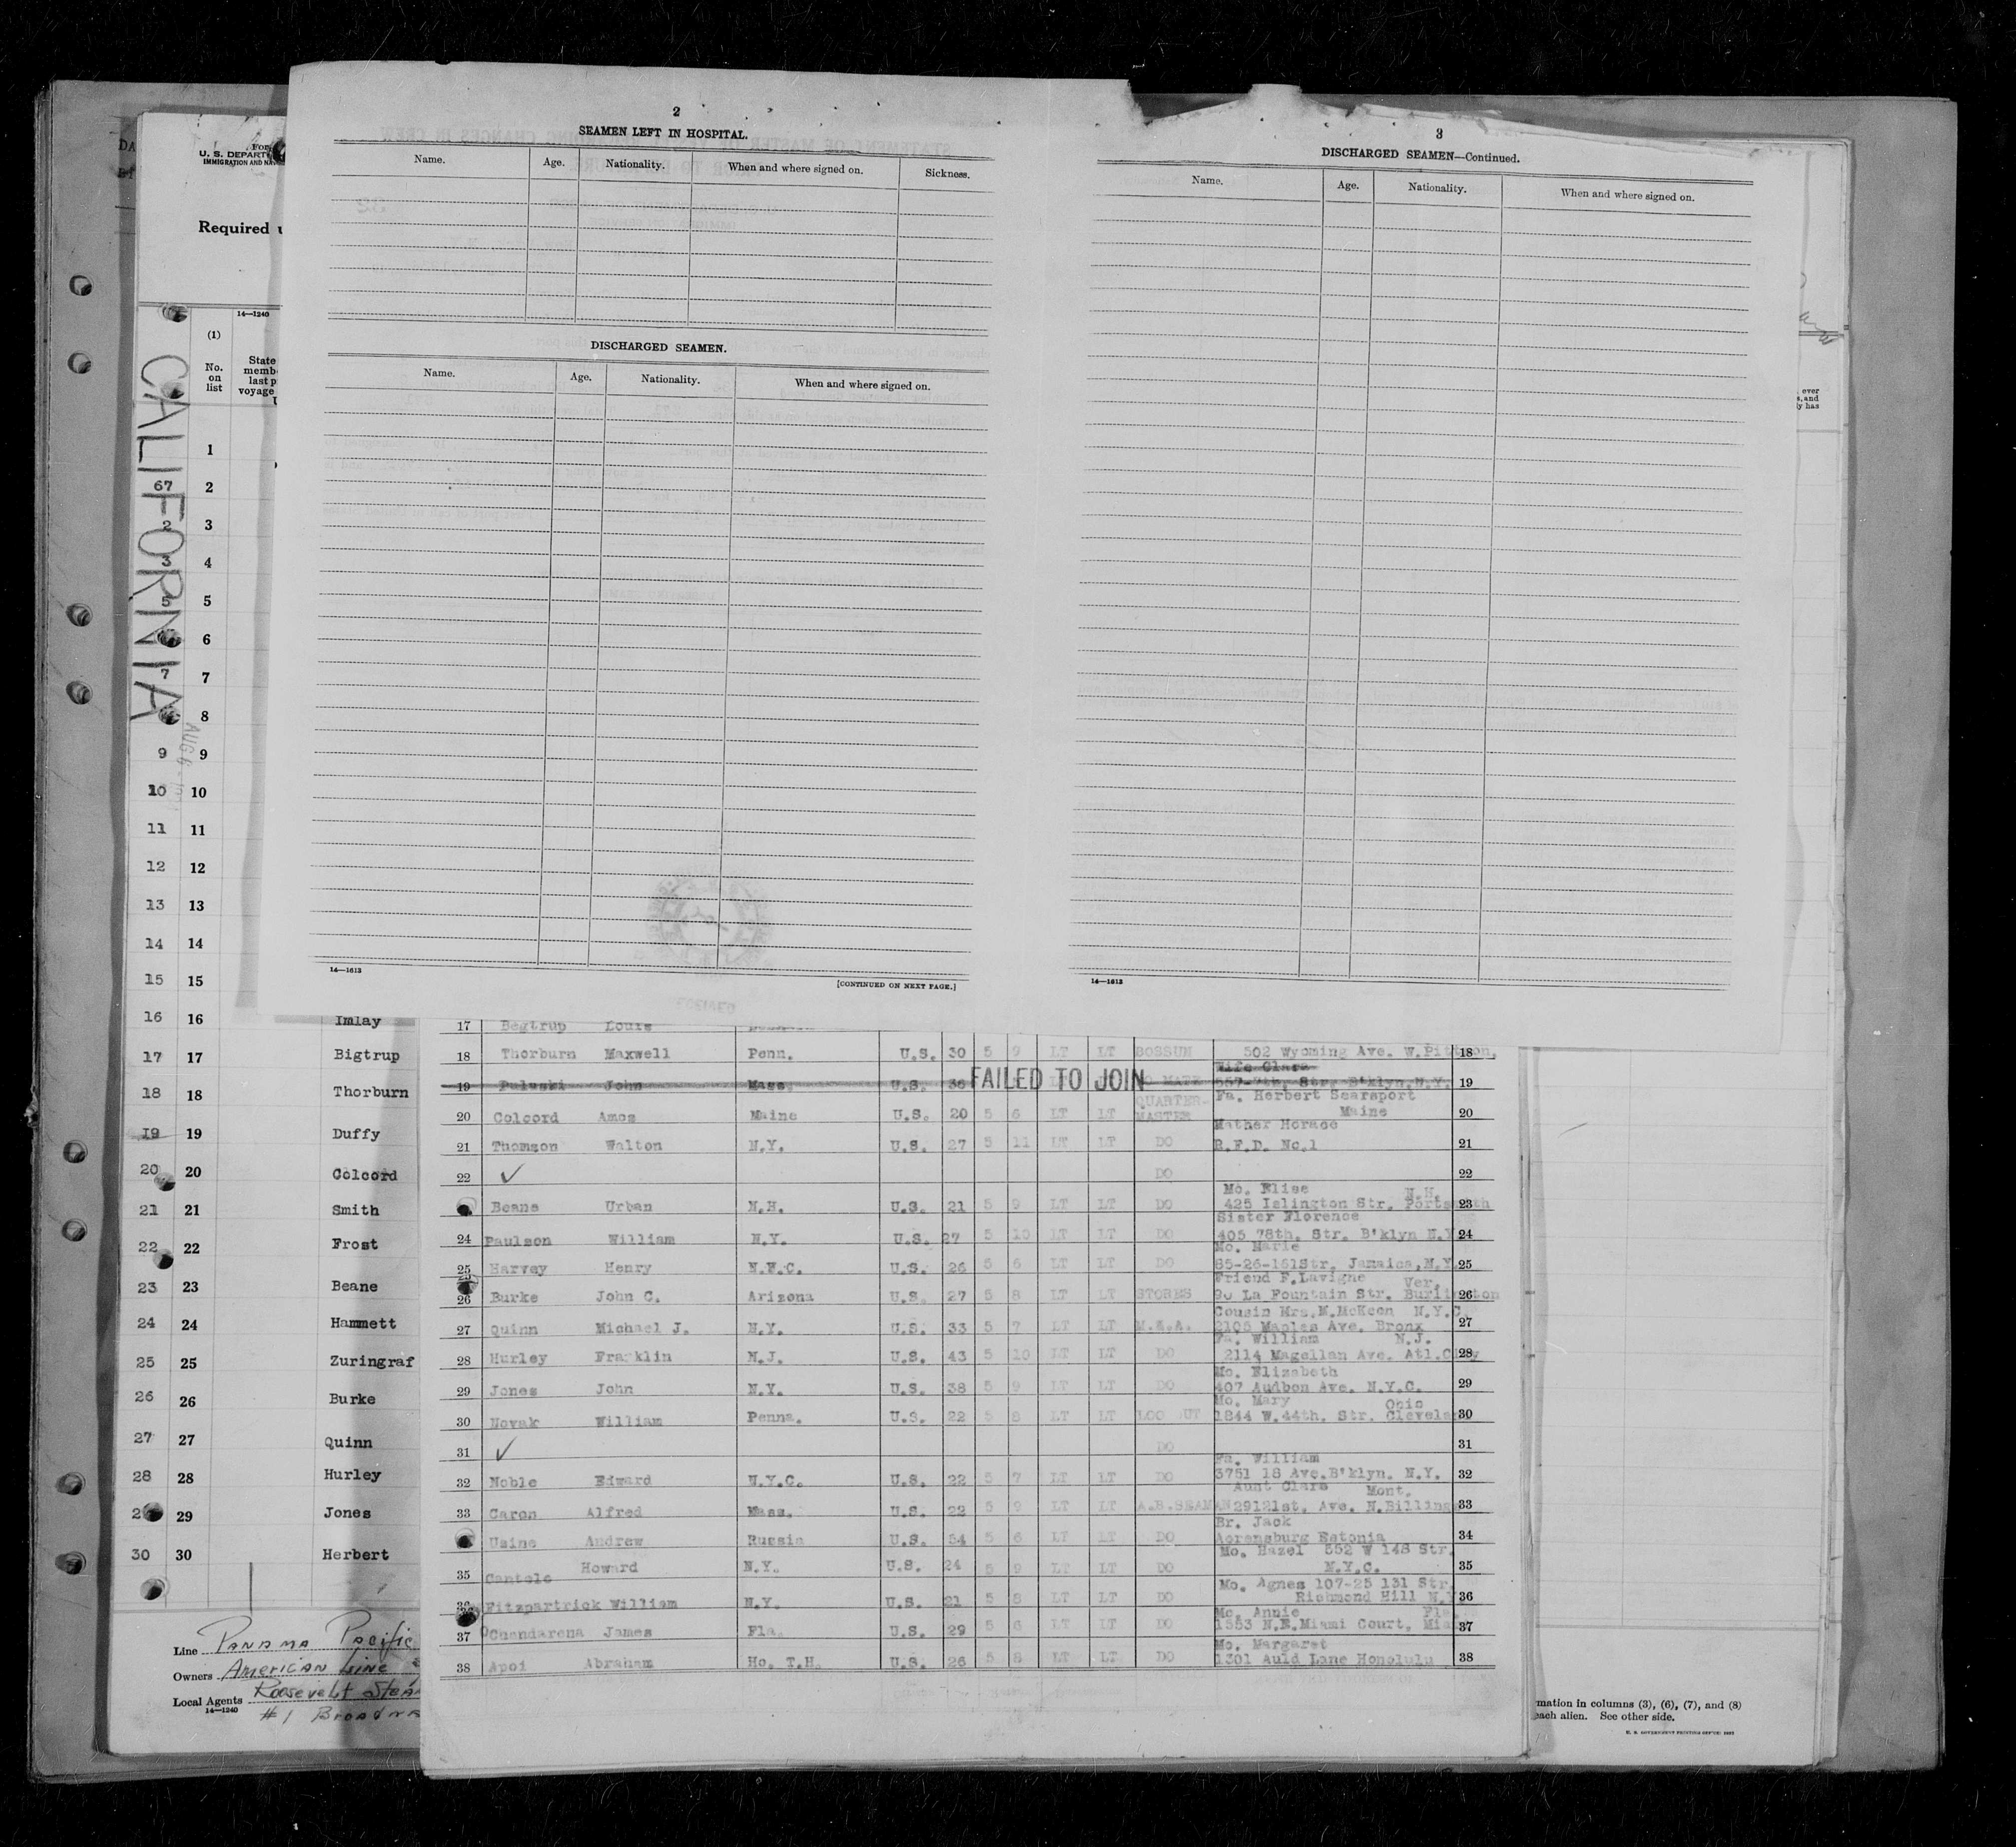 2
SEAMEN LEFT IN HOSPITAL.
Name. Age. Nationality. When and where signed on. Sickness.
DISCHARGED SEAMEN.
Name. Age. Nationality. When and where signed on.
14—1613
[CONTINUED ON NEXT PAGE.]
3
DISCHARGED SEAMEN—Continued.
Name. Age. Nationality. When and where signed on.
14—1613
U. S. DEPART
IMMIGRATION AND NA
Required
14—1240
(1)
No. on list
State
memb
last p
voyage
CALIFORNIA
AUG 6
1
67 2
2 3
3 4
5 5
6
7 7
8
9 9
10 10
11 11
12 12
13 13
14 14
15 15
16 16 Imlay
17 17 Bigtrup
18 18 Thorburn
19 19 Duffy
20 20 Colcord
21 21 Smith
22 22 Frost
23 23 Beane
24 24 Hammett
25 25 Zuringraf
26 26 Burke
27 27 Quinn
28 28 Hurley
2 29 Jones
30 30 Herbert
Line PANAMA Pacific
Owners AMERICAN LINE
Local Agents Roosevelt Stea
14—1240
#1 Broadwa
17 Begtrup Louis
18 Thorburn Maxwell Penn. U.S. 30 5 9 LT LT BOSSUN 502 Wyoming Ave. W.Pittson, 18
Wife Clara
19 Puluski John Mass. U.S. 36 FAILED TO JOIN 557-7th, Str. B'klyn.N.Y. 19
QUARTER- Fa. Herbert Searsport
20 Colcord Amos Maine U.S. 20 5 6 LT LT MASTER Maine 20
Mather Horace
21 Thomson Walton N.Y. U.S. 27 5 11 LT LT DO R.F.D. No.1 21
22 ✓ DO 22
Mo. Elise N.H.
Beane Urban N.H. U.S. 21 5 9 LT LT DO 425 Islington Str. Portsmouth 23
Sister Florence
24 Paulson William N.Y. U.S. 27 5 10 LT LT DO 405 78th. Str. B'klyn N.Y 24
Mo. Marie
25 Harvey Henry N.Y.C. U.S. 26 5 6 LT LT DO 85-26-161Str. Jamaica,N.Y. 25
Friend F.Lavigne Ver.
26 Burke John C. Arizona U.S. 27 5 8 LT LT STORES 90 La Fountain Str. Burlington 26
Cousin Mrs.M.McKeon N.Y.C.
27 Quinn Michael J. N.Y. U.S. 33 5 7 LT LT M.A.A. 2105 Maples Ave. Bronx 27
Fa. William N.J.
28 Hurley Franklin N.J. U.S. 43 5 10 LT LT DO 2114 Magellan Ave. Atl.City 28
Mo. Elizabeth
29 Jones John N.Y. U.S. 38 5 9 LT LT DO 407 Audbon Ave. N.Y.C. 29
Mo. Mary Ohio
30 Novak William Penna. U.S. 22 5 8 LT LT LOO OUT 1844 W.44th. Str. Clevela 30
31 ✓ DO 31
Fa. William
32 Noble Edward N.Y.C. U.S. 22 5 7 LT LT DO 3751 18 Ave.B'klyn. N.Y. 32
Aunt Clara Mont.
33 Caron Alfred Mass. U.S. 22 5 9 LT LT A.B.SEAMAN 29121st. Ave. N.Billing 33
Br. Jack
Usine Andrew Russia U.S. 54 5 6 LT LT DO Aorensburg Estonia 34
Mo. Hazel 552 W 148 Str.
35 Cantele Howard N.Y. U.S. 24 5 9 LT LT DO N.Y.C. 35
Mo. Agnes 107-25 131 Str
36 Fitzpartrick William N.Y. U.S. 21 5 8 LT LT DO Richmond Hill N.Y 36
Mo. Annie Fla.
37 Chandarena James Fla. U.S. 29 5 6 LT LT DO 1553 N.E.Miami Court, Mia 37
Mo. Margaret
38 Apoi Abraham Ho. T.H. U.S. 26 5 8 LT LT DO 1301 Auld Lane Honolulu 38
, ever
s, and
ly has
mation in columns (3), (6), (7), and (8)
each alien. See other side.
U. S. GOVERNMENT PRINTING OFFICE: 1932